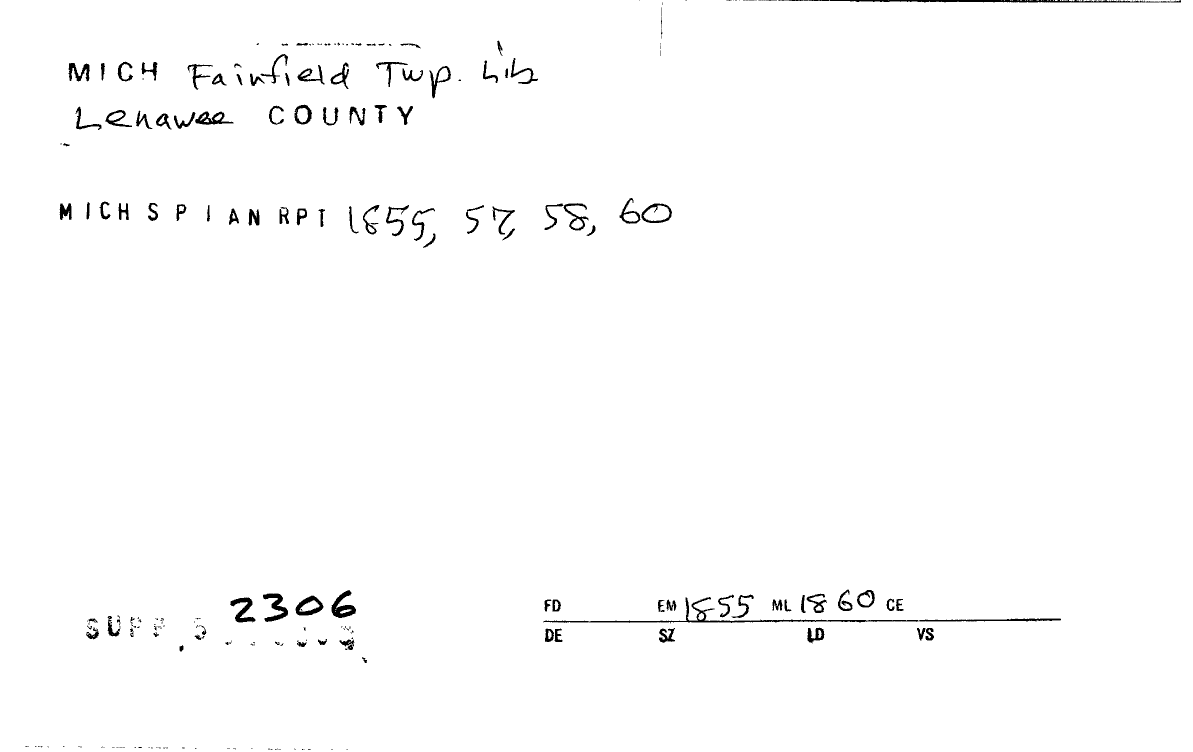 MICH Fairfield Twp. Lib
Lenawee COUNTY
MICH S P I AN RPT 1855, 57, 58, 60
SUPP. 5 2306
FD EM 1855 ML 1860 CE
DE SZ LD VS